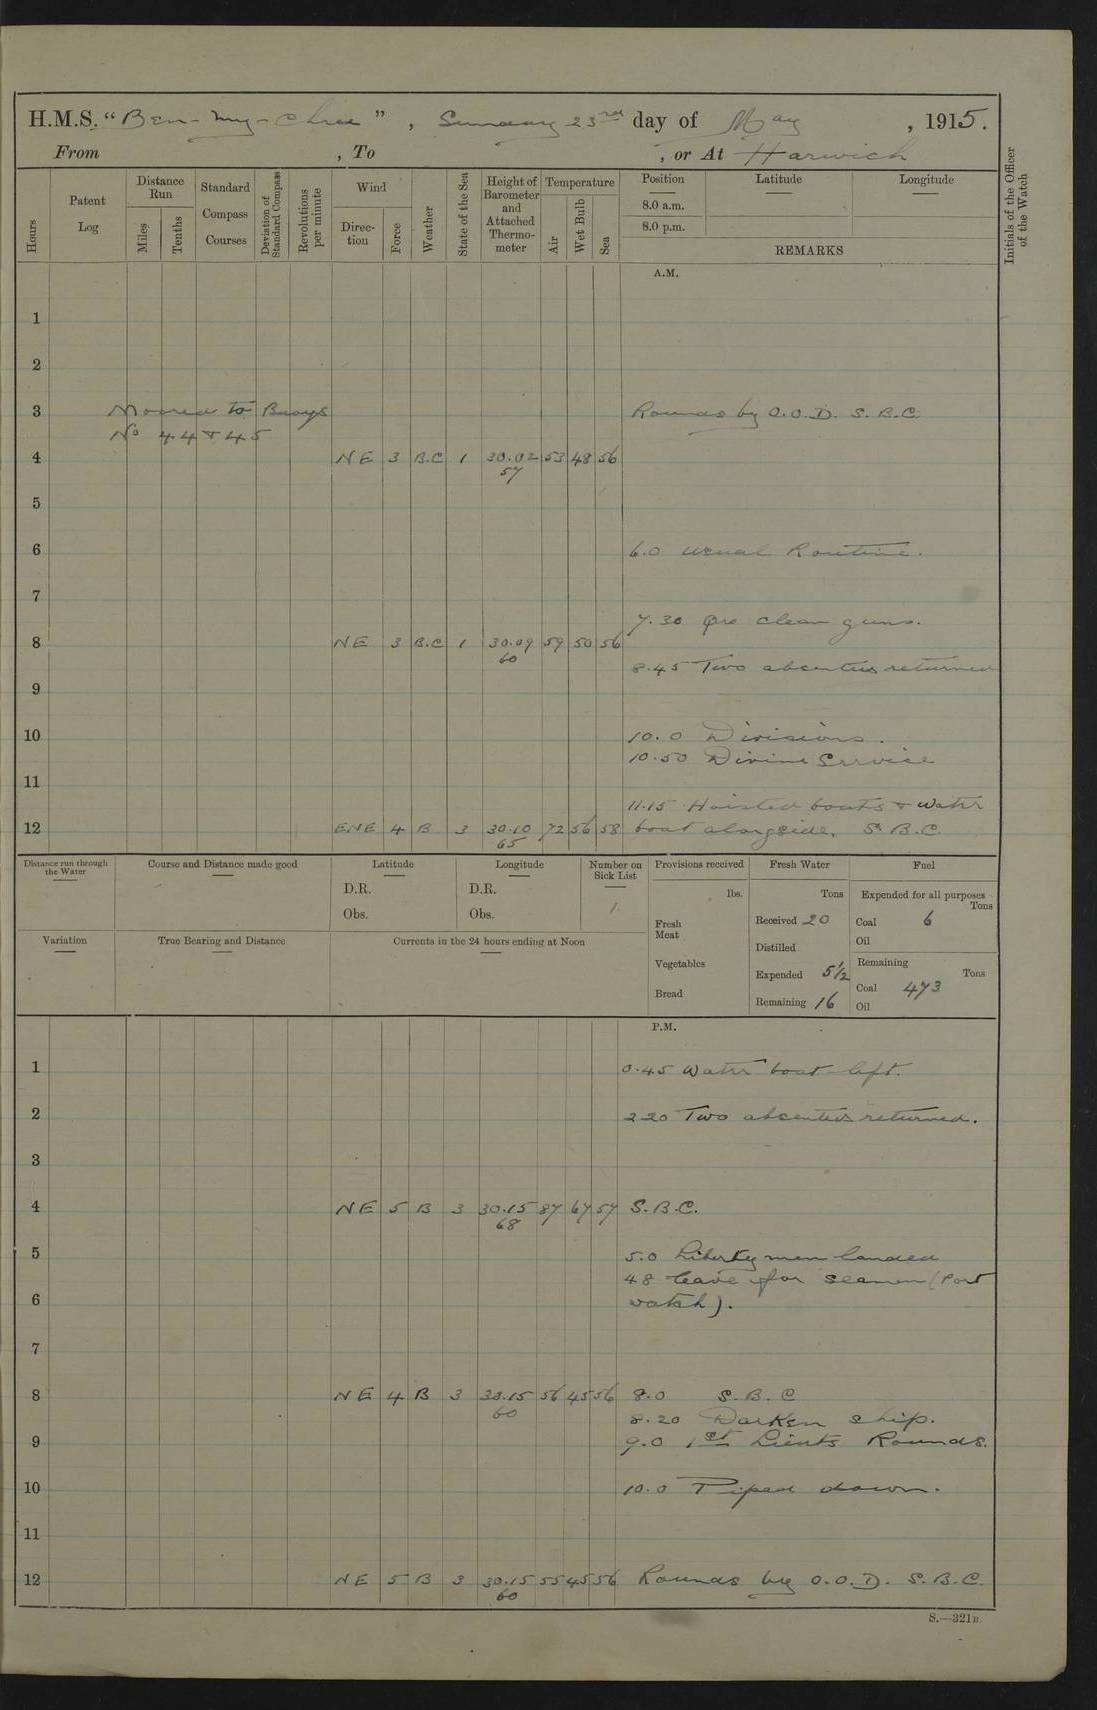 H.M.S. "Ben-my-Chree", Sunday 23rd day of May, 1915.
From , To , or At Harwich
Hours
Patent Log
Distance Run
Miles
Tenths
Standard Compass Courses
Deviation of Standard Compass
Revolutions per minute
Wind
Direc-tion
Force
Weather
State of the Sea
Height of Barometer and Attached Thermo-meter
Temperature
Air
Wet Bulb
Sea
Position
8.0 a.m.
8.0 p.m.
Latitude
Longitude
REMARKS
Initials of the Officer of the Watch
A.M.
1
2
3 Moored to Buoys Rounds by O.O.D. S.B.C.
No 44 & 45
4 NE 3 B.C 1 30.02 53 48 56
57
5
6 6.0 Usual Routine.
7
7.30 clean guns.
8 NE 3 B.C 1 30.09 59 50 56
60
8.45 Two absentees returned
9
10 10.0 Divisions.
10.50 Divine Service
11
11.15 Hoisted boats & water
12 ENE 4 B 3 30.10 72 56 58 boat alongside. S.B.C.
65
Distance run through the Water
Course and Distance made good
Latitude
D.R.
Obs.
Longitude
D.R.
Obs.
Number on Sick List
1
Provisions received
lbs.
Fresh Meat
Vegetables
Bread
Fresh Water
Tons
Received 20
Distilled
Expended 5½
Remaining 16
Fuel
Expended for all purposes
Tons
Coal 6
Oil
Remaining
Tons
Coal 473
Oil
Variation
True Bearing and Distance
Currents in the 24 hours ending at Noon
P.M.
1 0.45 Water boat left.
2 2.20 Two absentees returned.
3
4 NE 5 B 3 30.15 87 67 57 S.B.C.
68
5 5.0 Liberty men landed
48 leave for seamen (Port
6 watch).
7
8 NE 4 B 3 30.15 56 45 56 8.0 S.B.C
60
8.20 Darken ship.
9 9.0 1st Lieuts Rounds.
10 10.0 Piped down.
11
12 NE 5 B 3 30.15 55 45 56 Rounds by O.O.D. S.B.C.
60
S.—321B.